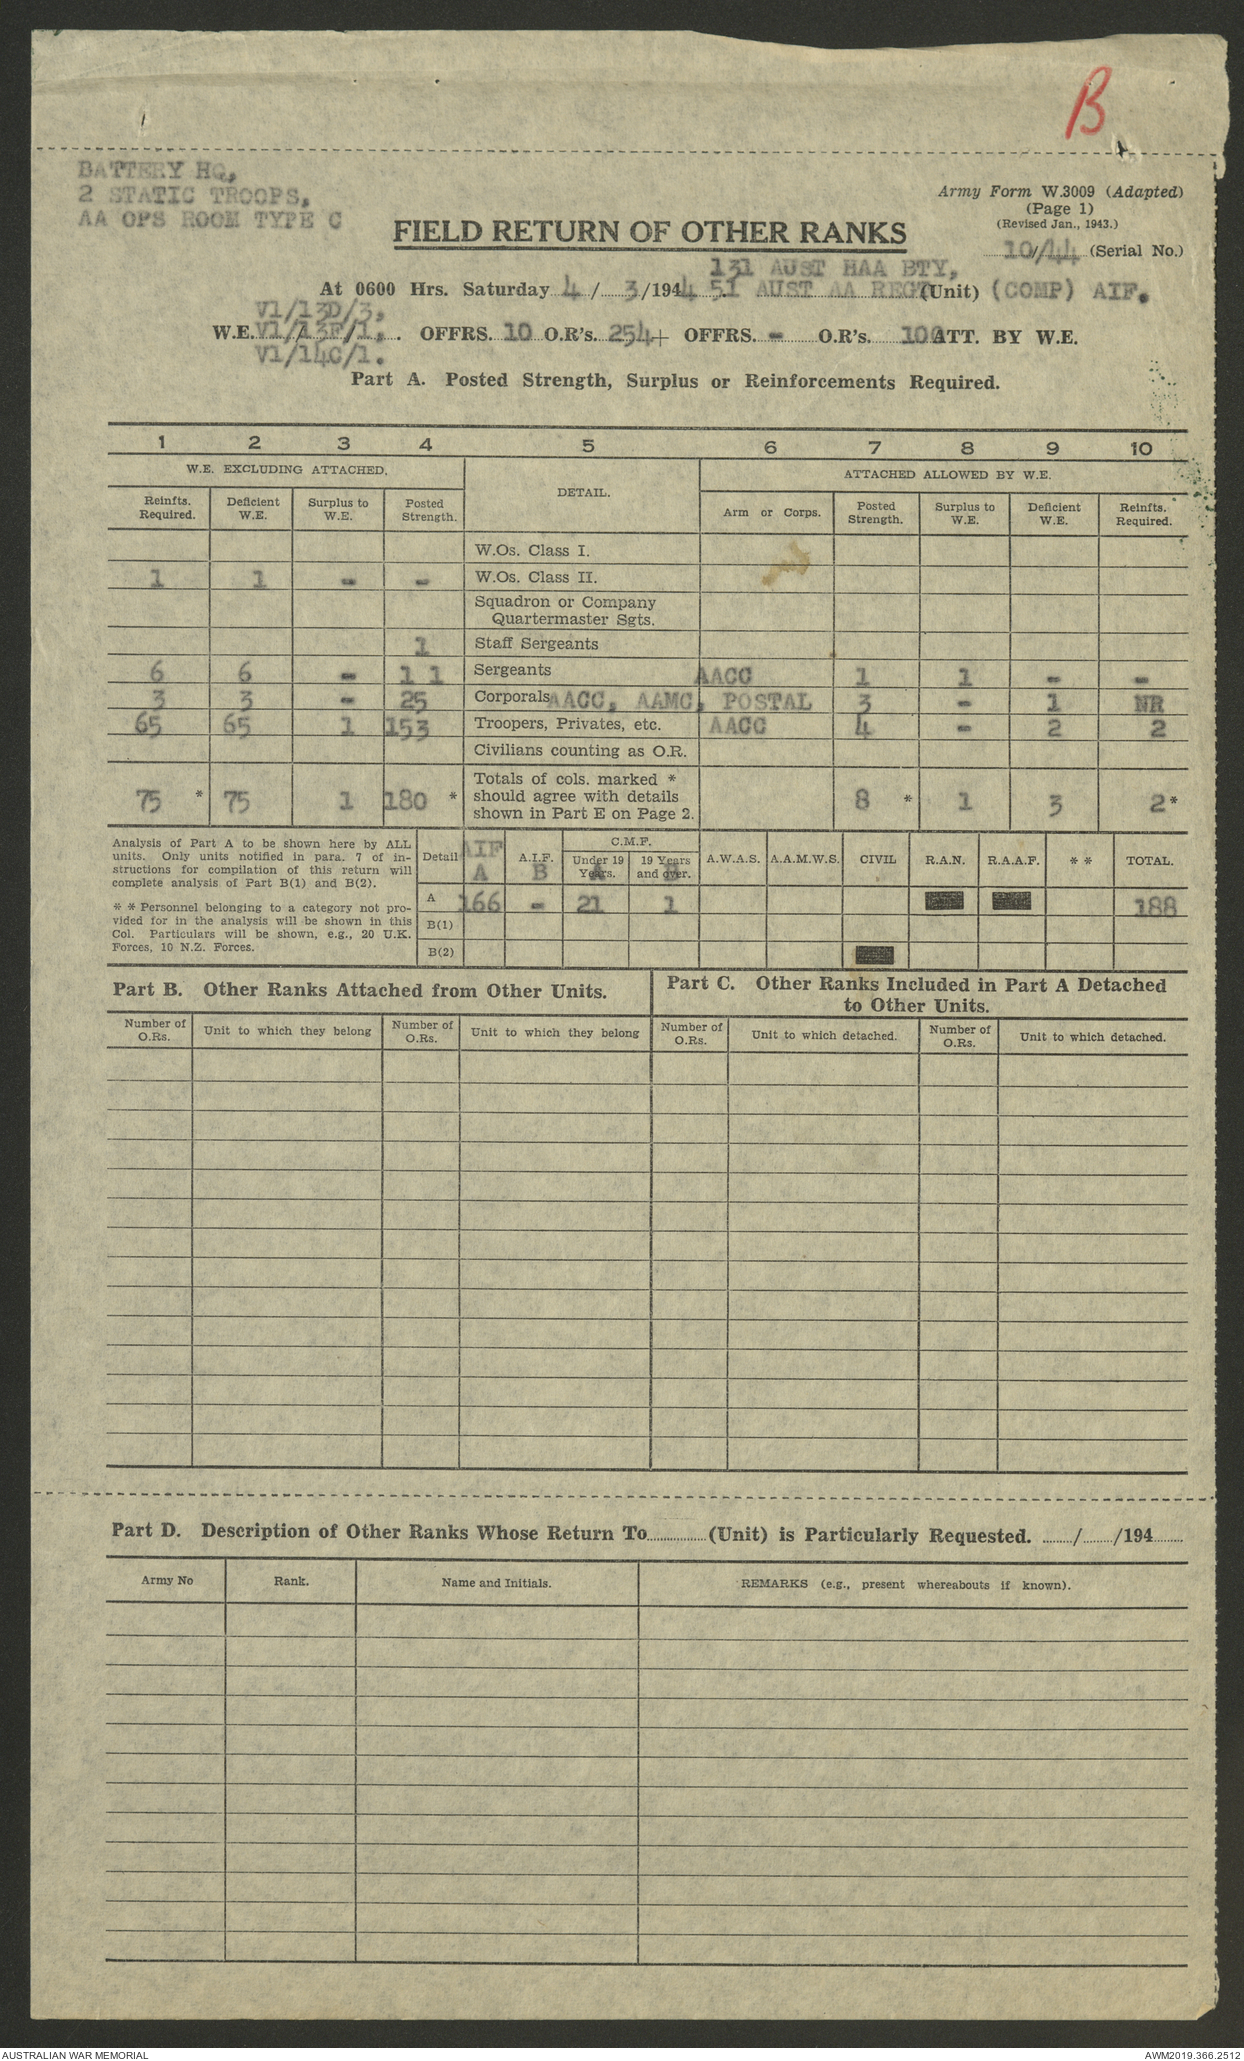 B
BATTERY HQ,
2 STATIC TROOPS,
AA OPS ROOM TYPE C
Army Form W.3009 (Adapted)
(Page 1)
(Revised Jan., 1943.)
FIELD RETURN OF OTHER RANKS
10/44 (Serial No.)
131 AUST HAA BTY,
At 0600 Hrs. Saturday 4 / 3/1944 51 AUST AA REGT (Unit) (COMP) AIF.
V1/13D/3,
W.E. V1/13F/1, OFFRS. 10 O.R's. 254+ OFFRS. - O.R's. 10 ATT. BY W.E.
V1/14C/1.
Part A. Posted Strength, Surplus or Reinforcements Required.
1 2 3 4 5 6 7 8 9 10
W.E. EXCLUDING ATTACHED. DETAIL. ATTACHED ALLOWED BY W.E.
Reinfts. Required. Deficient W.E. Surplus to W.E. Posted Strength. Arm or Corps. Posted Strength. Surplus to W.E. Deficient W.E. Reinfts. Required.
W.Os. Class I.
1 1 - - W.Os. Class II.
Squadron or Company
Quartermaster Sgts.
1 Staff Sergeants
6 6 - 11 Sergeants AACC 1 1 - -
3 3 - 25 Corporals AACC, AAMC, POSTAL 3 - 1 NR
65 65 1 153 Troopers, Privates, etc. AACC 4 - 2 2
Civilians counting as O.R.
Totals of cols. marked *
should agree with details
shown in Part E on Page 2.
75 * 75 1 180 * 8 * 1 3 2*
Analysis of Part A to be shown here by ALL
units. Only units notified in para. 7 of in-
structions for compilation of this return will
complete analysis of Part B(1) and B(2).
* * Personnel belonging to a category not pro-
vided for in the analysis will be shown in this
Col. Particulars will be shown, e.g., 20 U.K.
Forces, 10 N.Z. Forces.
Detail AIF A A.I.F. B C.M.F. Under 19 Years. A 19 Years and over. B A.W.A.S. A.A.M.W.S. CIVIL R.A.N. R.A.A.F. * * TOTAL.
A 166 - 21 1 188
B(1)
B(2)
Part B. Other Ranks Attached from Other Units.
Part C. Other Ranks Included in Part A Detached
to Other Units.
Number of O.Rs. Unit to which they belong Number of O.Rs. Unit to which they belong Number of O.Rs. Unit to which detached. Number of O.Rs. Unit to which detached.
Part D. Description of Other Ranks Whose Return To (Unit) is Particularly Requested. / /194
Army No Rank. Name and Initials. REMARKS (e.g., present whereabouts if known).
AUSTRALIAN WAR MEMORIAL
AWM2019.366.2512